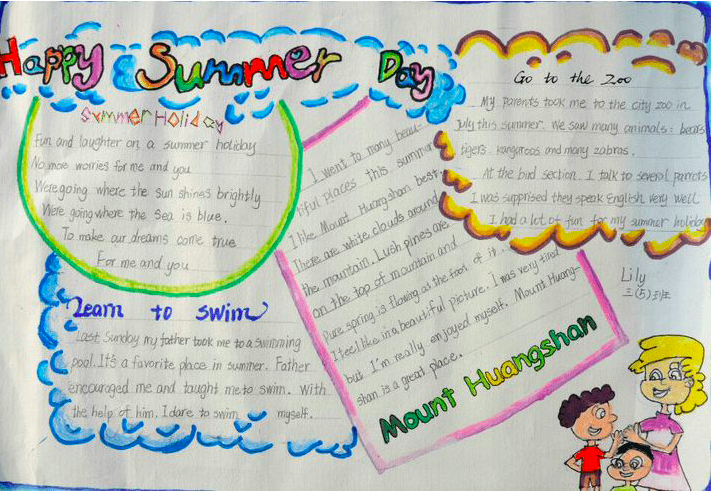 Happy Summer Day
Summer Holiday
Fun and laughter on a summer holiday
No more worries for me and you
We're going where the sun shines brightly
We're going where the sea is blue.
To make our dreams come true
For me and you
Learn to swim
Last Sunday my father took me to a swimming
pool. It's a favorite place in summer. Father
encouraged me and taught me to swim. With
the help of him. I dare to swim myself.
I went to many beau-
tiful places this summer
I like Mount Huangshan best.
There are white clouds around
the mountain. Lush pines are
on the top of mountain and
Pure spring is flowing at the foot of it.
I feel like in a beautiful picture. I was very tired
but I'm really enjoyed myself. Mount Huang-
shan is a great place.
Mount Huangshan
Go to the Zoo
My parents took me to the city zoo in
July this summer. We saw many animals: bears
tigers. kangaroos and many zabras.
At the bird section. I talk to several parrots
I was supprised they speak English very well
I had a lot of fun for my summer holiday
Lily
三(5)班